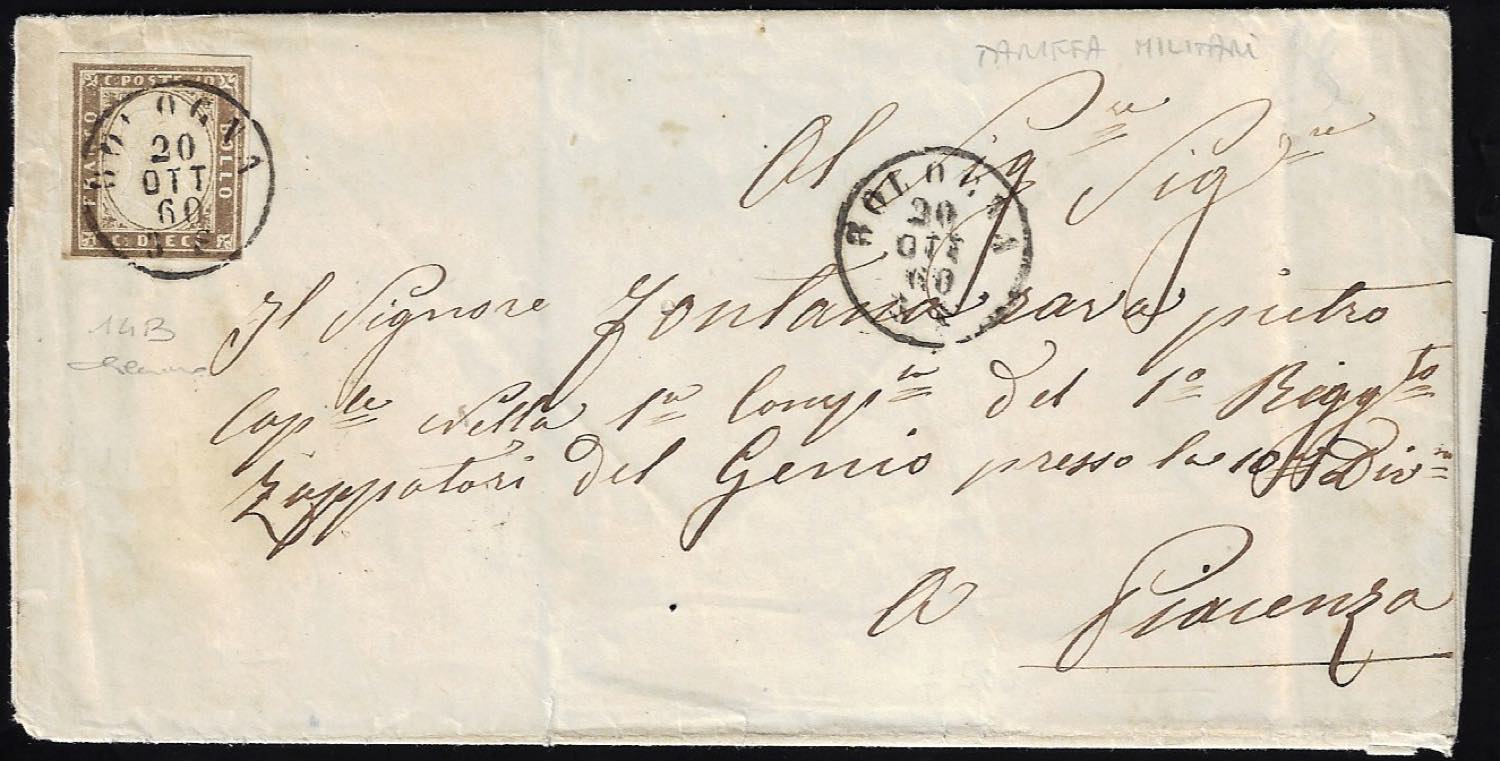 TARIFFA MILITARI
C. POSTE 10
FRANCO
BOLLO
C. DIECI
BOLOGNA
20
OTT
60
Al Sig.re Sig.re
BOLOGNA
20
OTT
60
Il Signore Fontana rava pietro
14B
Cap.le nella 1a Comp.ia del 1o Regg.to
Zappatori del Genio presso la Div.ne
A Piacenza